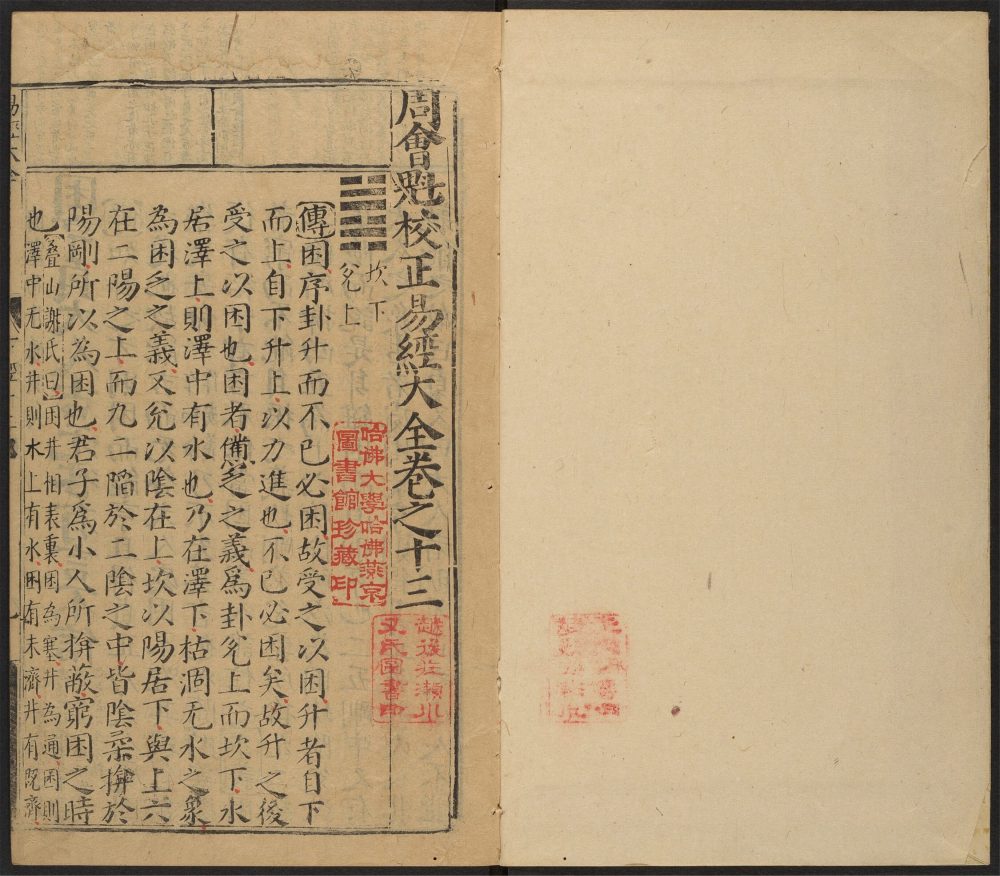 周會魁校正易經大全卷之十三
坎下
兌上
傳困序卦升而不已必困故受之以困升者自下
而上自下升上以力進也不已必困矣故升之後
受之以困也困者憊乏之義為卦兌上而坎下水
居澤上則澤中有水也乃在澤下枯涸无水之象
為困乏之義又兌以陰在上坎以陽居下與上六
在二陽之上而九二陷於二陰之中皆陰柔揜於
陽剛所以為困也君子為小人所揜蔽窮困之時
也疊山謝氏曰困井相表裏困為塞井為通困則
澤中无水井則木上有水困有未濟井有既濟
哈佛大學哈佛燕京
圖書館珍藏印